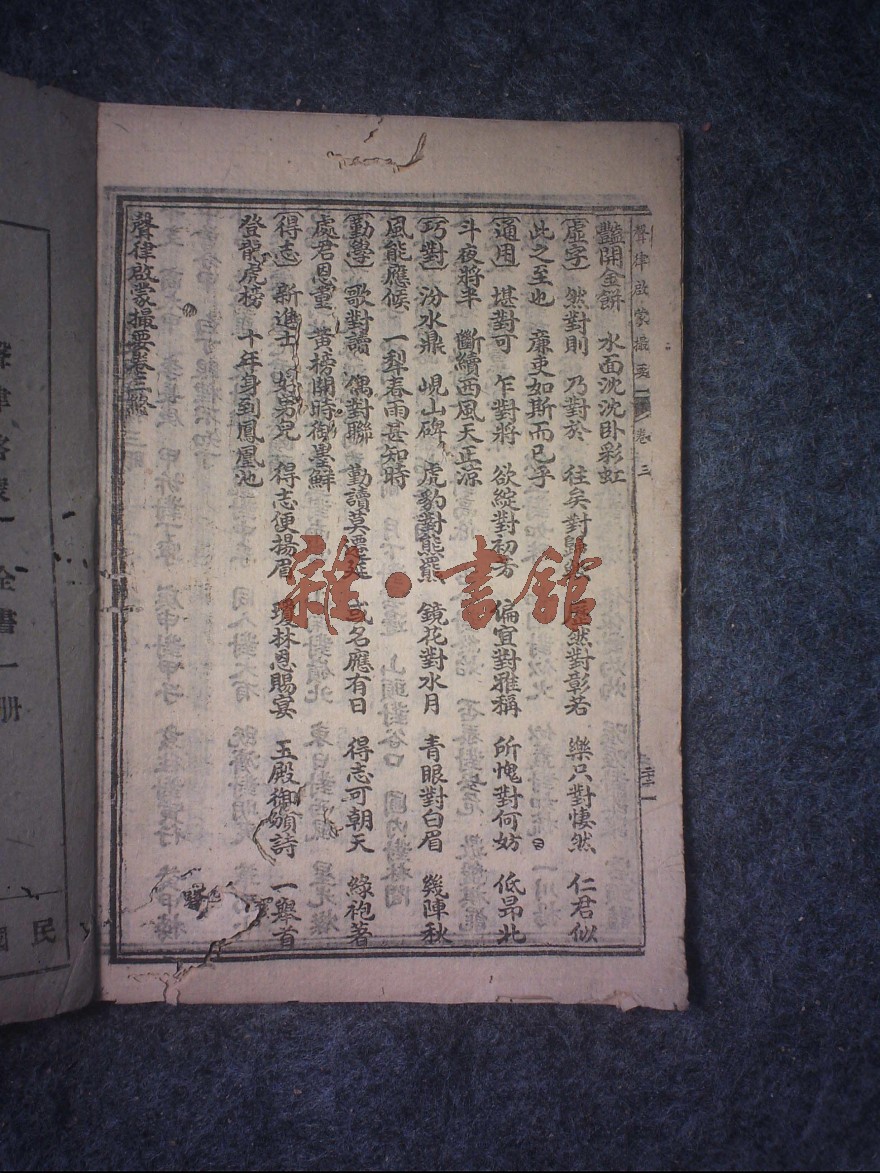 聲律啟蒙撮要 卷三
豔開金餅 水面沈沈卧彩虹
虛字 然對則 乃對於 往矣對歸 然對彰若 樂只對悽然 仁君似
此之至也 廉吏如斯而已乎
通用 堪對可 乍對將 欲綻對初芳 偏宜對雅稱 所愧對何妨 低昂北
斗夜將半 斷續西風天正涼
巧對 汾水鼎 峴山碑 虎豹對熊羆 鏡花對水月 青眼對白眉 幾陣秋
風能應候 一犁春雨甚知時
勤學 歌對讀 偶對聯 勤讀莫遷延 成名應有日 得志可朝天 綠袍著
處君恩重 黃榜開時御墨鮮
得志 新進士 好男兒 得志便揚眉 瓊林恩賜宴 玉殿御頒詩 一舉首
登龍虎榜 十年身到鳳凰池
聲律啟蒙撮要卷三終
聲律啓蒙 全書一册
民國
雜·書館